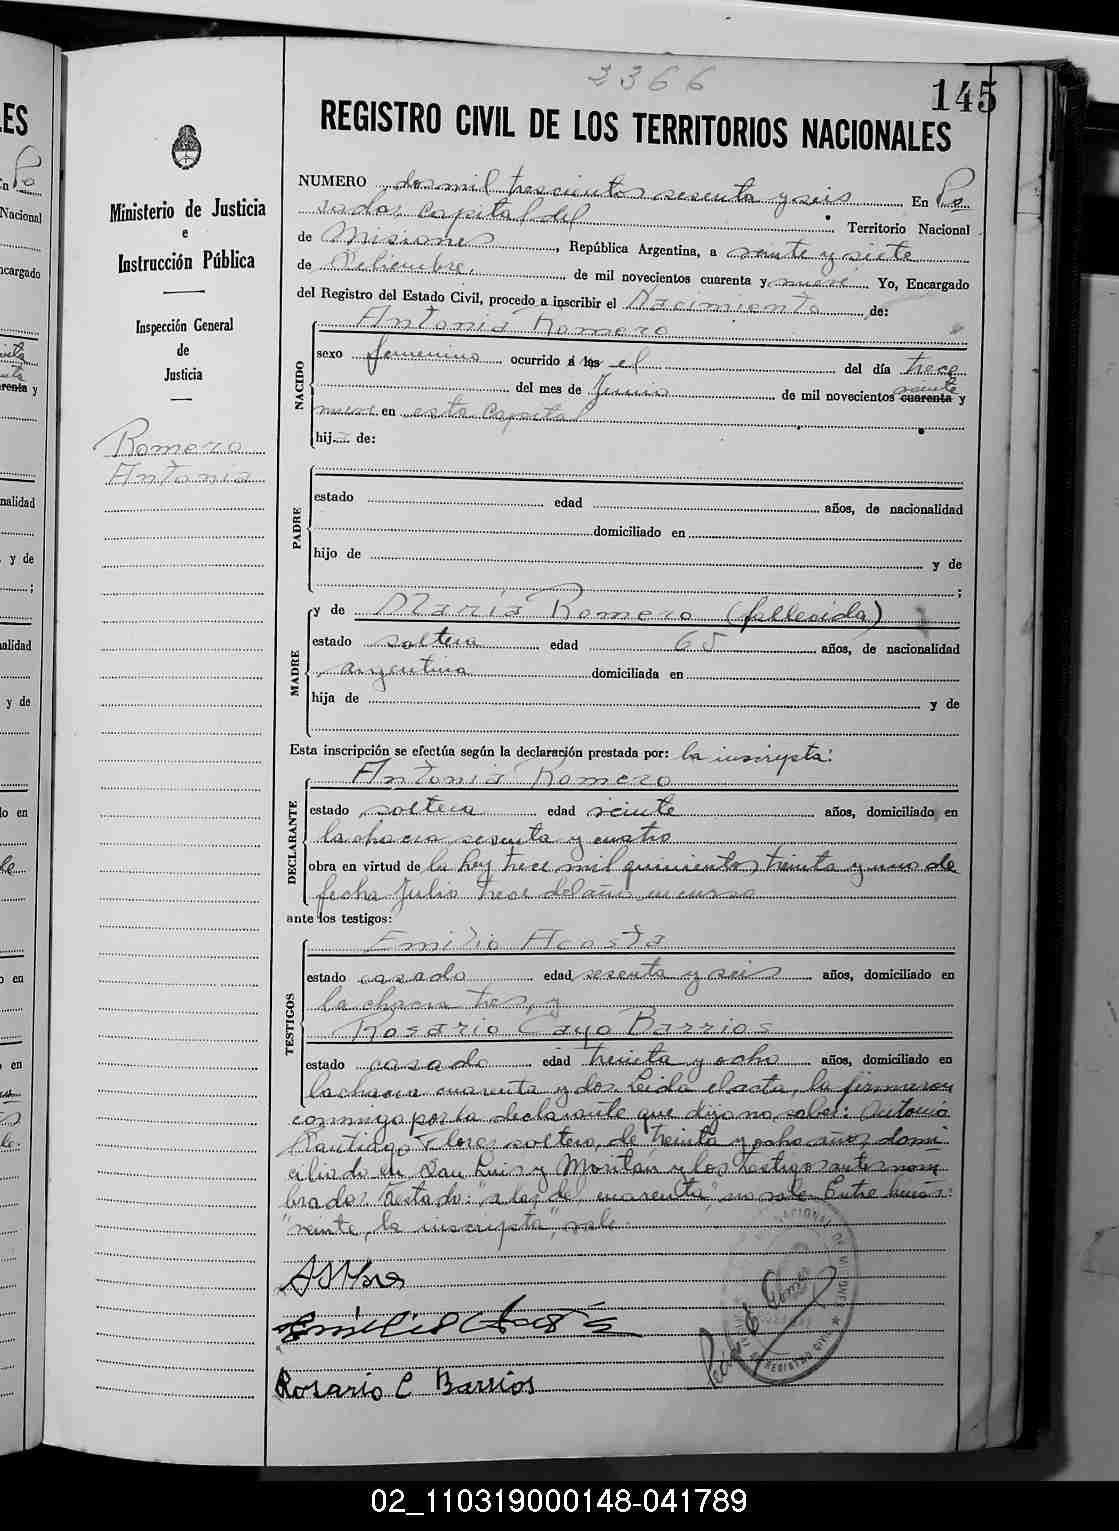 2366
145
REGISTRO CIVIL DE LOS TERRITORIOS NACIONALES
Ministerio de Justicia
e
Instrucción Pública
Inspección General
de
Justicia
Romero
Antonia
NUMERO dos mil trescientos sesenta y seis En Po
sadas capital del Territorio Nacional
de Misiones, República Argentina, a veinte y siete
de Setiembre, de mil novecientos cuarenta y nueve Yo, Encargado
del Registro del Estado Civil, procedo a inscribir el Nacimiento de:
NACIDO
Antonia Romero
sexo femenino ocurrido a las el del día trece
del mes de Junio de mil novecientos cuarenta veinte y
nueve en esta Capital
hij de:
PADRE
estado edad años, de nacionalidad
domiciliado en
hijo de y de
;
MADRE
y de María Romero (fallecida)
estado soltera edad 65 años, de nacionalidad
argentina domiciliada en
hija de y de
Esta inscripción se efectúa según la declaración prestada por: la inscripta:
DECLARANTE
Antonia Romero
estado soltera edad veinte años, domiciliado en
la chacra sesenta y cuatro
obra en virtud de la Ley trece mil quinientos treinta y uno de
fecha Julio trece del año en curso
ante los testigos:
TESTIGOS
Emilio Acosta
estado casado edad sesenta y seis años, domiciliado en
la chacra tres, y
Rosario Cayo Barrios
estado casado edad treinta y ocho años, domiciliado en
la chacra cuarenta y dos. Leida el acta, la firmaron
conmigo por la declarante que dijo no saber: Antonio
Santiago Flores soltero, de treinta y ocho años, domi
ciliado en San Luis y Moritán y los testigos antes nom
brados. Testado: "a las, del, cuarenta", no vale. Entre líneas:
"veinte, la inscripta", vale.
Emilio Acosta
Rosario C Barrios
REGISTRO CIVIL
02_110319000148-041789